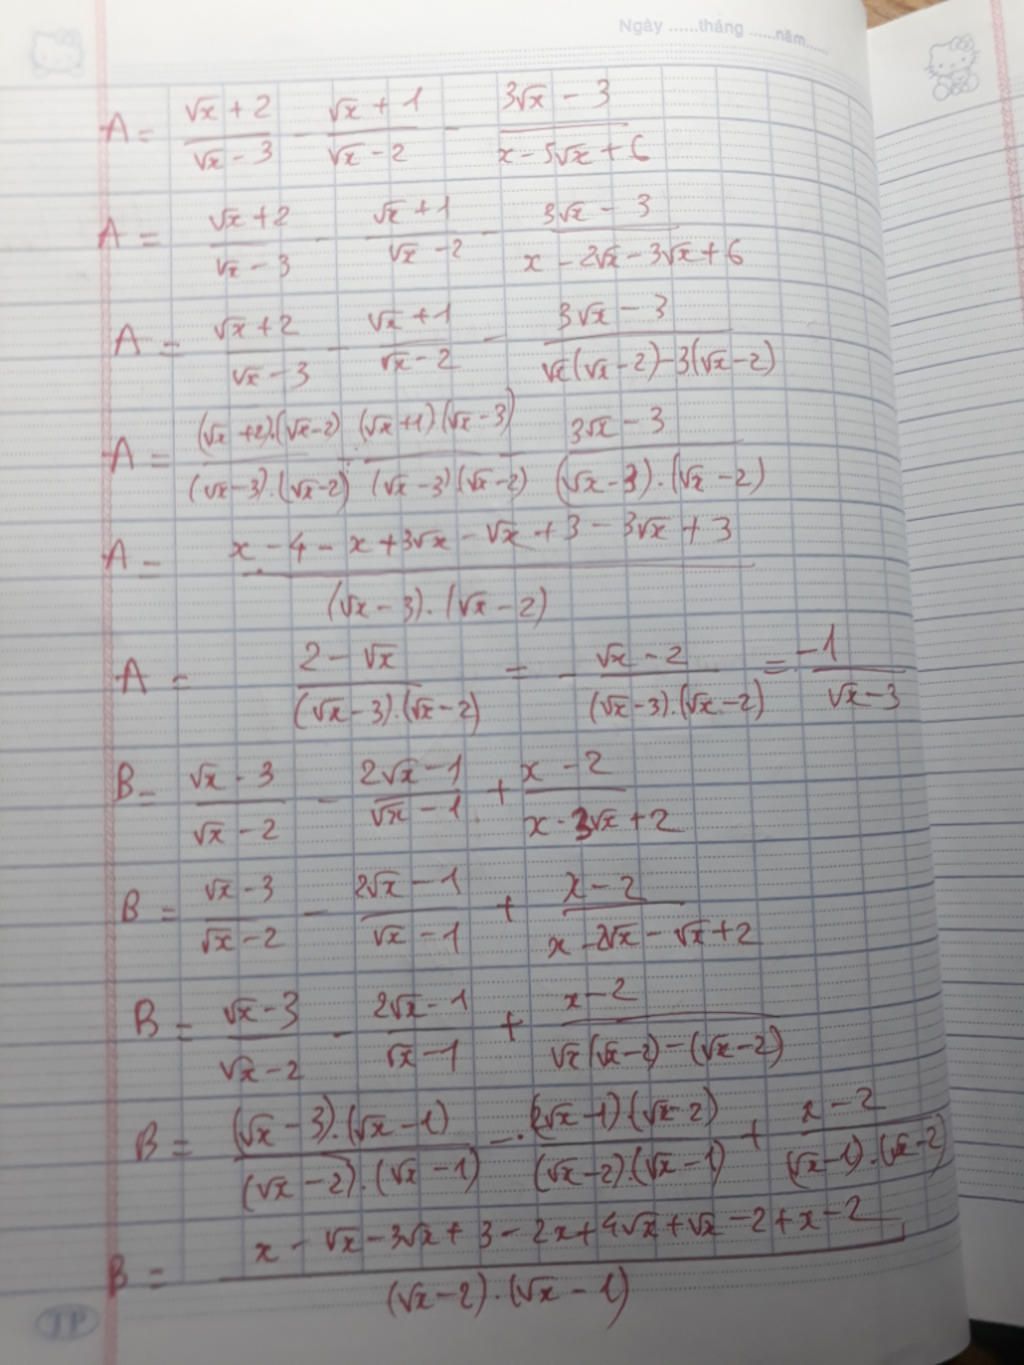 Ngày ......tháng ......năm......
A = (√x + 2)/(√x - 3) - (√x + 1)/(√x - 2) - (3√x - 3)/(x - 5√x + 6)
A = (√x + 2)/(√x - 3) - (√x + 1)/(√x - 2) - (3√x - 3)/(x - 2√x - 3√x + 6)
A = (√x + 2)/(√x - 3) - (√x + 1)/(√x - 2) - (3√x - 3)/(√x(√x - 2) - 3(√x - 2))
A = ((√x + 2).(√x - 2))/((√x - 3).(√x - 2)) - ((√x + 1).(√x - 3))/((√x - 3)(√x - 2)) - (3√x - 3)/((√x - 3).(√x - 2))
A = (x - 4 - x + 3√x - √x + 3 - 3√x + 3)/((√x - 3).(√x - 2))
A = (2 - √x)/((√x - 3).(√x - 2)) = - (√x - 2)/((√x - 3).(√x - 2)) = -1/(√x - 3)
B = (√x - 3)/(√x - 2) - (2√x - 1)/(√x - 1) + (x - 2)/(x - 3√x + 2)
B = (√x - 3)/(√x - 2) - (2√x - 1)/(√x - 1) + (x - 2)/(x - 2√x - √x + 2)
B = (√x - 3)/(√x - 2) - (2√x - 1)/(√x - 1) + (x - 2)/(√x(√x - 2) - (√x - 2))
B = ((√x - 3).(√x - 1))/((√x - 2).(√x - 1)) - ((2√x - 1)(√x - 2))/((√x - 2).(√x - 1)) + (x - 2)/((√x - 1).(√x - 2))
B = (x - √x - 3√x + 3 - 2x + 4√x + √x - 2 + x - 2)/((√x - 2).(√x - 1))
TP